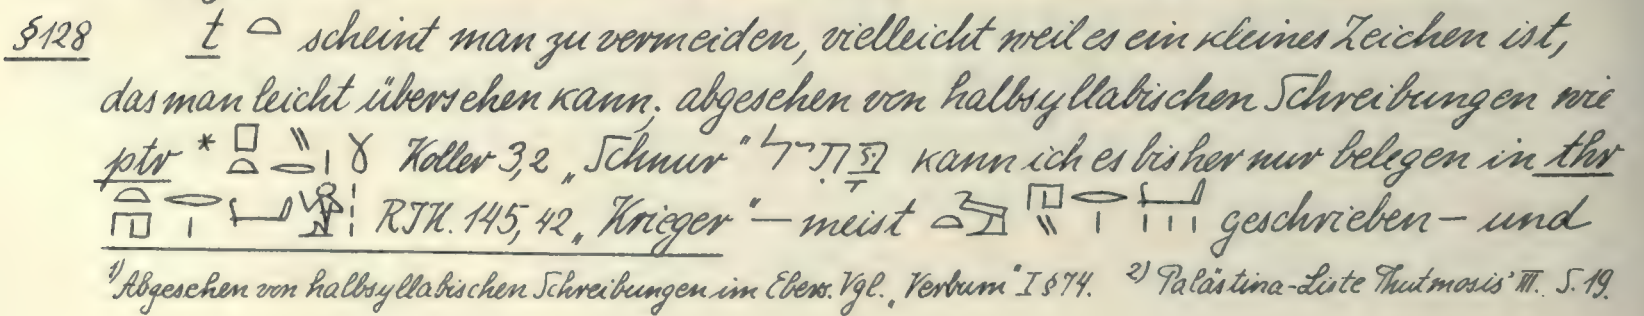 §128 t 𓏏 scheint man zu vermeiden, vielleicht weil es ein kleines Zeichen ist,
das man leicht übersehen kann; abgesehen von halbsyllabischen Schreibungen wie
ptr * 𓊪𓏏𓏮𓂋𓏤𓍢 Koller 3,2 „Schnur" kann ich es bisher nur belegen in thr
𓏏𓉔𓂋𓏤 RIH. 145,42 „Krieger" – meist geschrieben – und
1) Abgesehen von halbsyllabischen Schreibungen im Ebers. Vgl. „Verbum" I §74. 2) Palästina-Liste Thutmosis' III. S. 19.